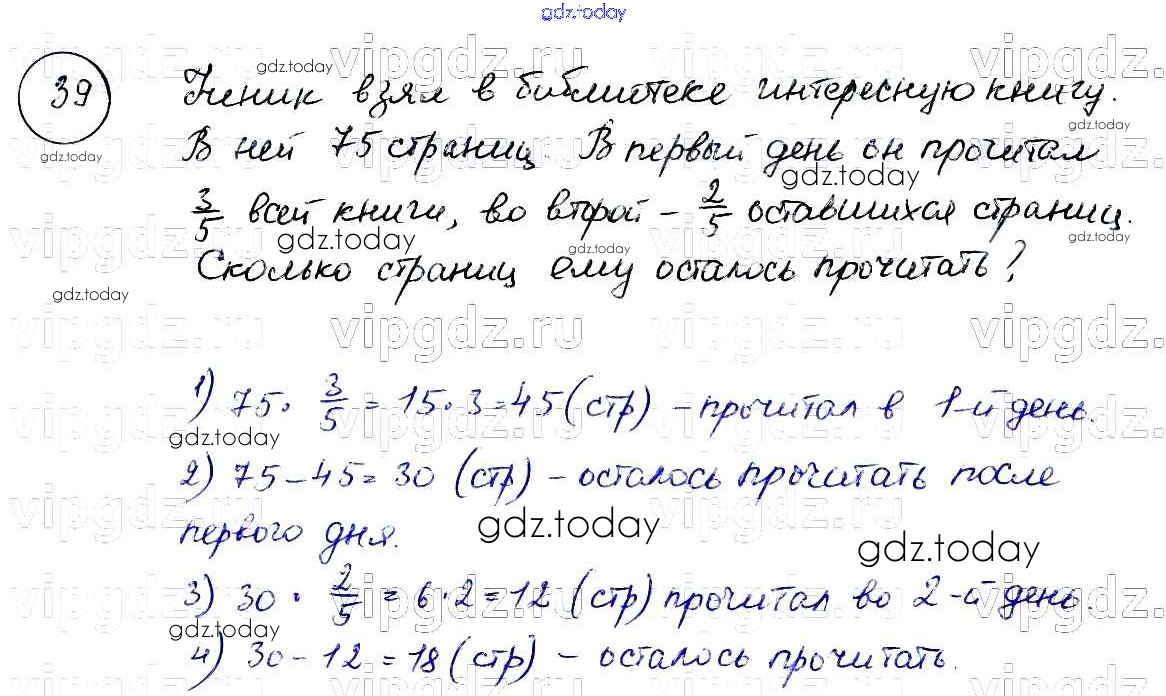 gdz.today
vipgdz.ru vipgdz.ru vipgdz.ru vipgdz.ru
39
gdz.today
gdz.today
Ученик взял в библиотеке интересную книгу.
gdz.today
В ней 75 страниц. В первый день он прочитал
gdz.today
3/5 всей книги, во второй - 2/5 оставшихся страниц.
gdz.today
gdz.today
gdz.today
Сколько страниц ему осталось прочитать?
gdz.today
vipgdz.ru vipgdz.ru vipgdz.ru vipgdz.ru
1) 75 · 3/5 = 15 · 3 = 45 (стр) - прочитал в 1-й день.
gdz.today
2) 75 - 45 = 30 (стр) - осталось прочитать после
первого дня.
gdz.today
gdz.today
3) 30 · 2/5 = 6 · 2 = 12 (стр) прочитал во 2-й день.
gdz.today
4) 30 - 12 = 18 (стр) - осталось прочитать.